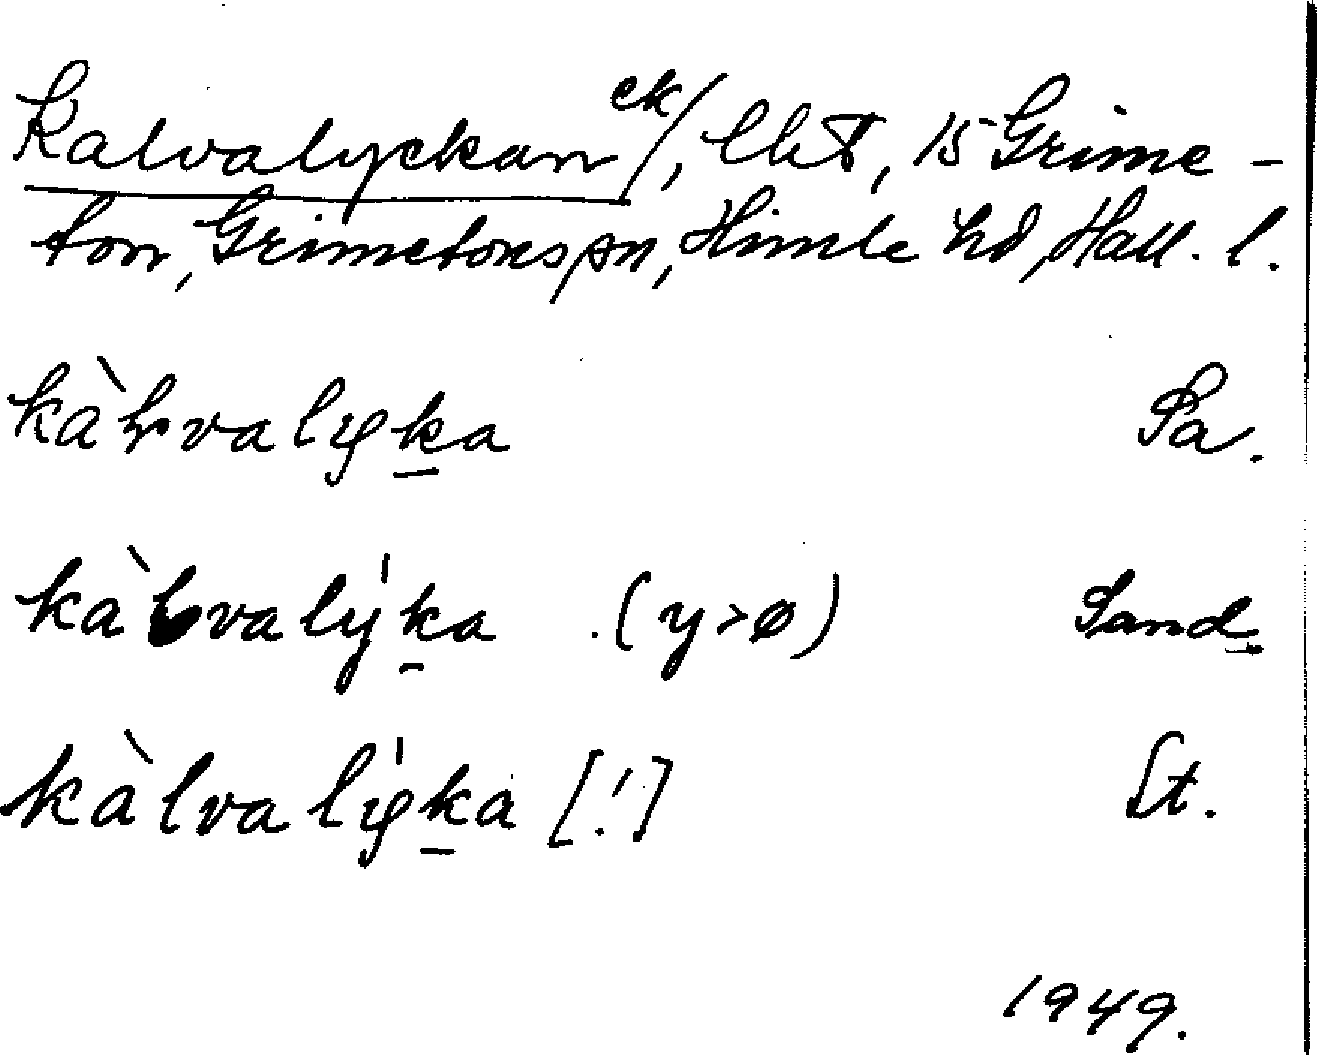 Kalvalyckan ek/, lht, 15 Grime-
ton, Grimetons sn, Himle hd, Hall. l.
kàlvalyka Pa.
kàlvalýka (y>ø) Sand.
kàlvalýka [!] St.
1949.